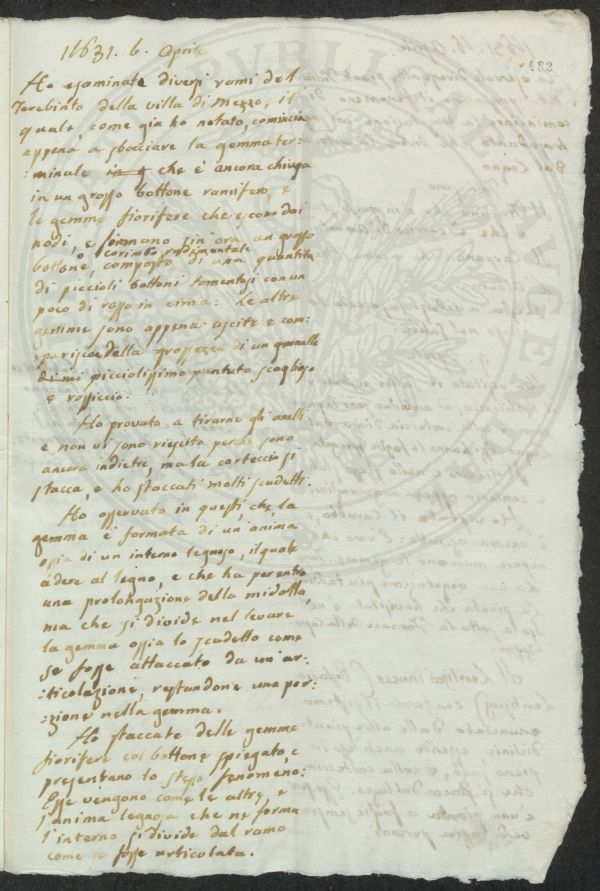 11631. 6. Aprile
482
Ho esaminate diversi rami del
Terebinto della villa di Mezzo, il
quale, come gia ho notato, comincia
appena a sbocciare la gemma ter:
:minale che è ancora chiusa
in un grosso bottone ramifero, e
le gemme fiorifere che escono dai
nodi, e formano sin ora un grosso
o corimbo rudimentale
bottone, composto di una quantità
di piccioli bottoni tomentosi con un
poco di rosso in cima: Le altre
gemme sono appena uscite e com:
:pariscon della grossezza di un granello
di mi picciolissimo puntuto scaglioso
e rossiccio.
Ho provato a tirarne gli anelli
e non vi sono riescito perchè sono
ancora indietro, ma la corteccia si
stacca, e ho staccati molti scudetti.
Ho osservato in questi che la
gemma è formata di un' anima
ossia di un interno legnoso, il quale
adere al legno, e che ha per entro
una prolongazione della midolla,
ma che si divide nel levare
la gemma ossia lo scudetto come
se fosse attaccato da un' ar:
:ticolazione, restandone una por:
:zione nella gemma.
Ho staccate delle gemme
fiorifere col bottone spiegato, e
presentano lo stesso fenomeno:
Esse vengono come le altre, e
l'anima legnosa che ne forma
l'interno si divide dal ramo
come se fosse articolata.